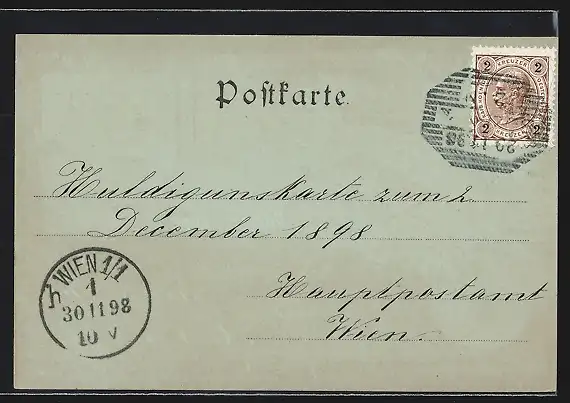 Postkarte.
2 KREUZER 2
2 KREUZER 2
Huldigunskarte zum 2.
December 1898
Hauptpostamt
Wien.
WIEN 1/1
1
30 11 98
10 V